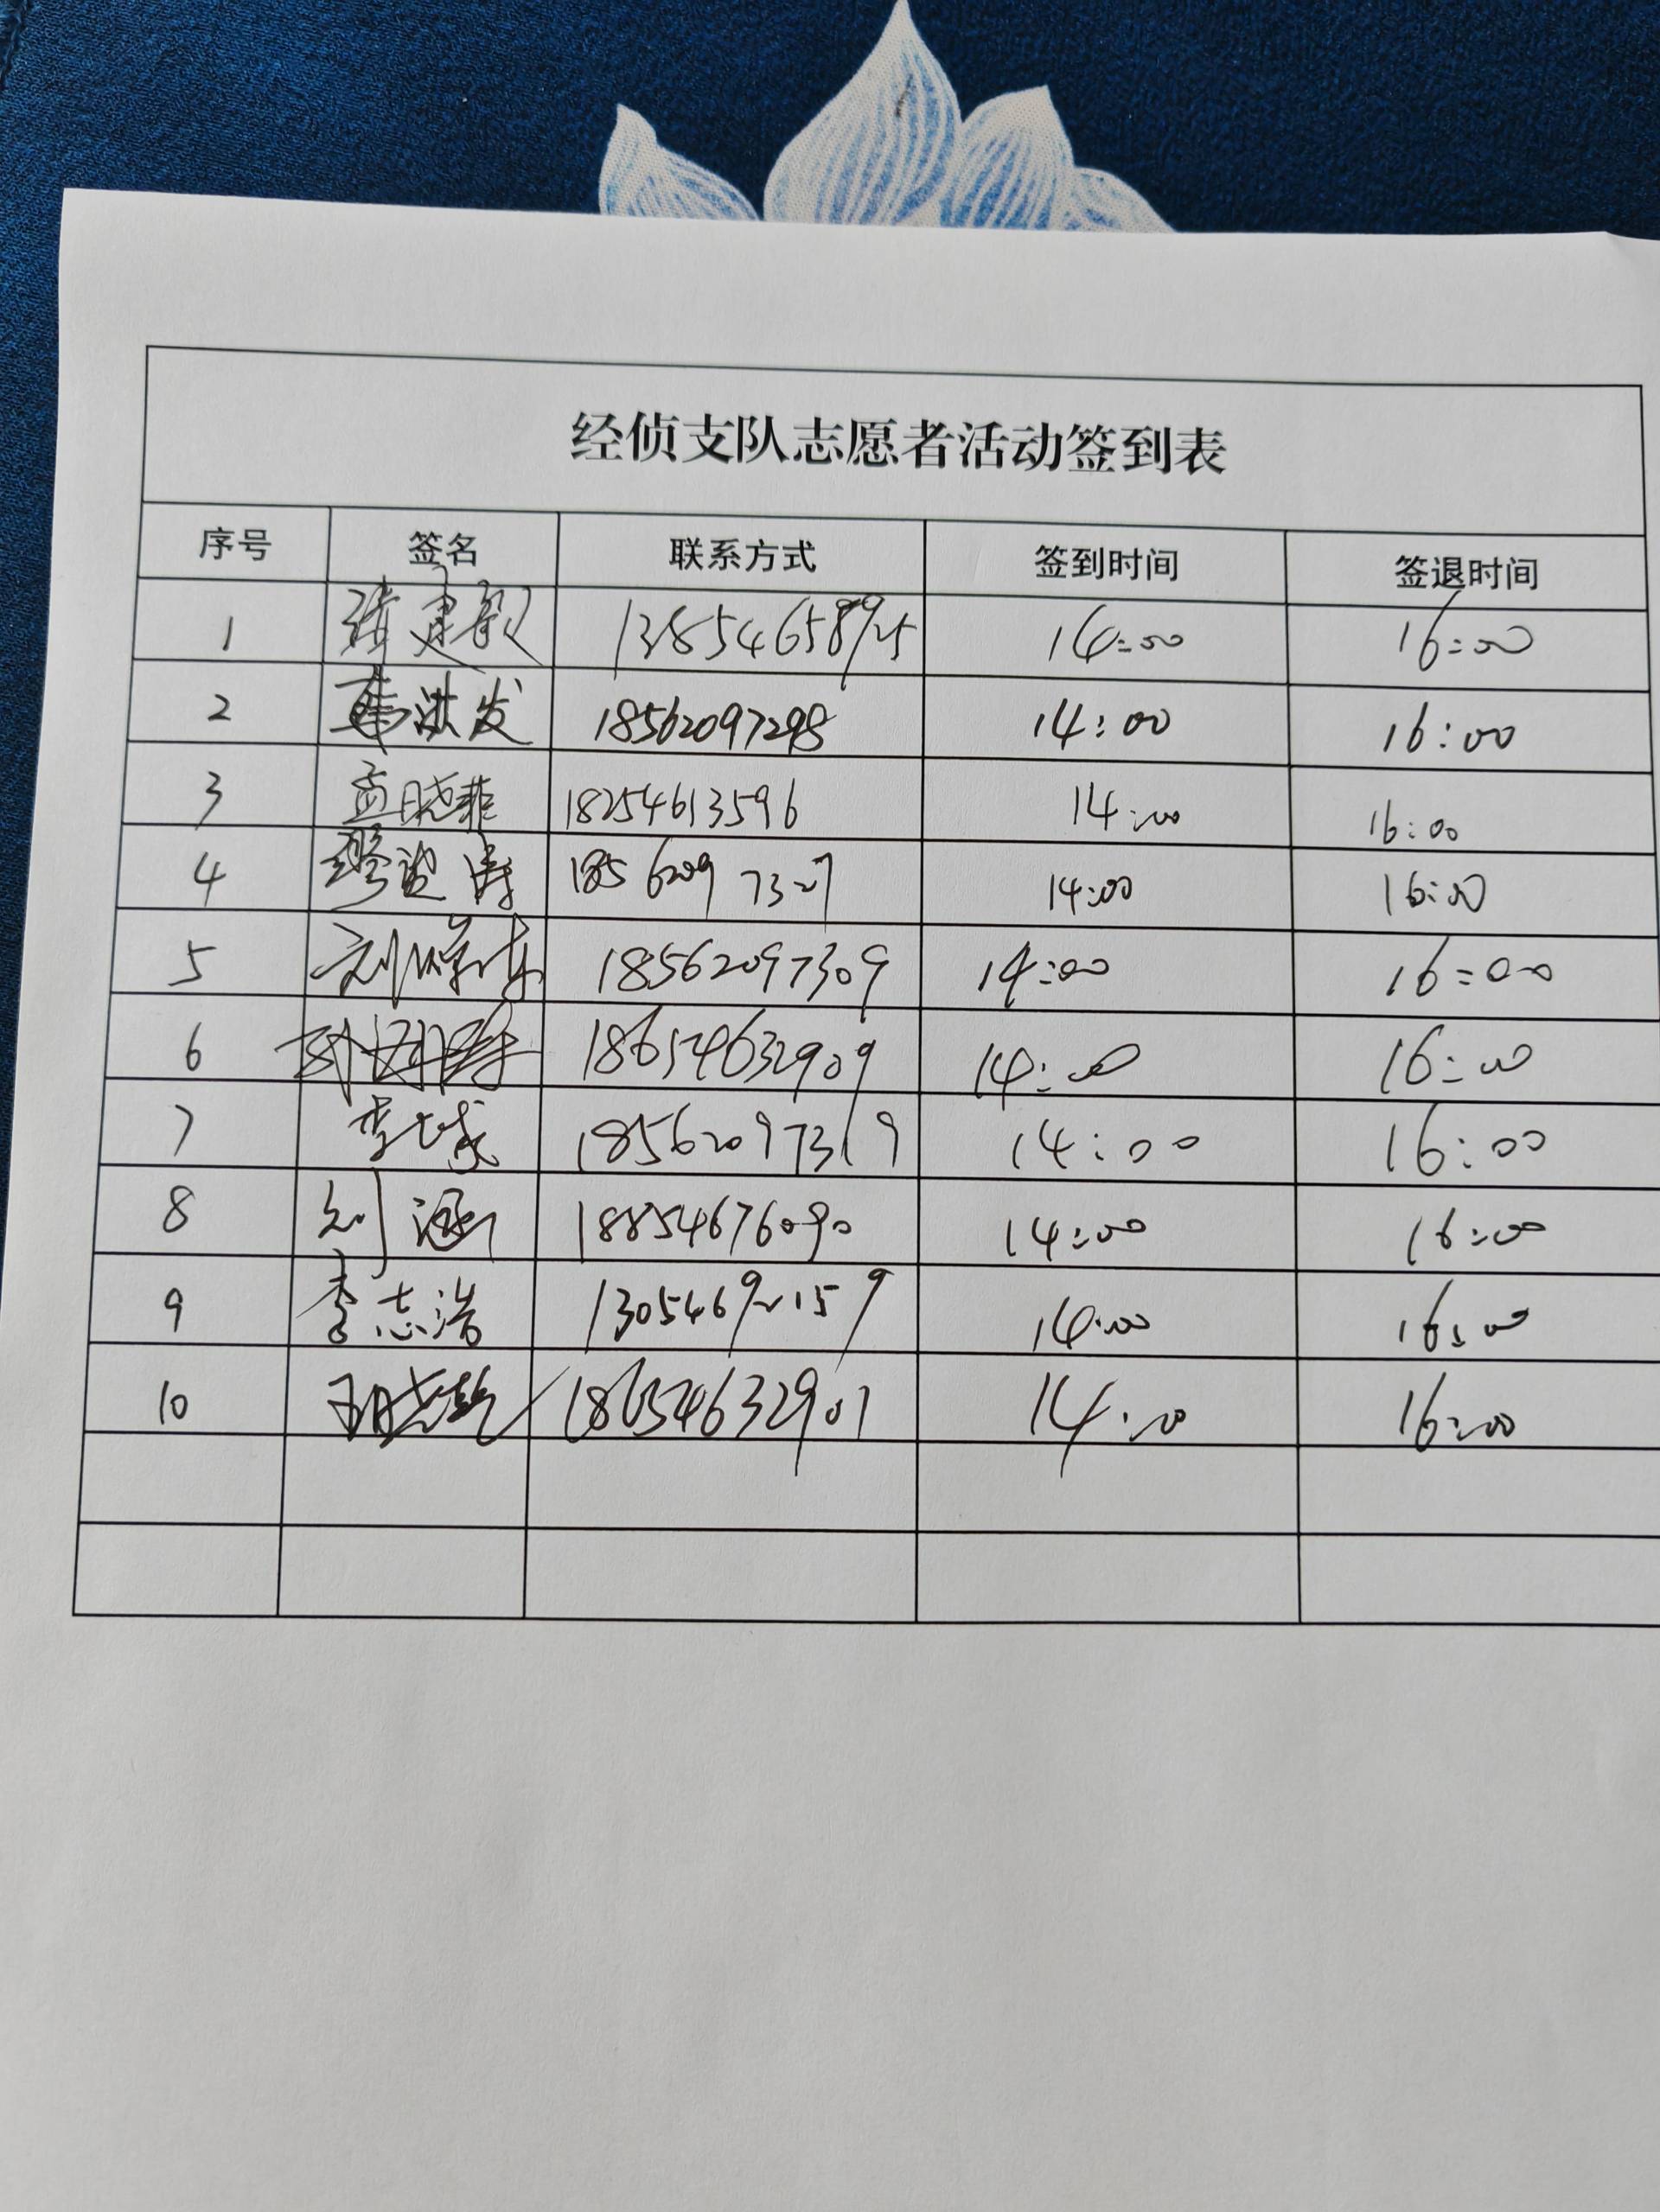 经侦支队志愿者活动签到表
序号 签名 联系方式 签到时间 签退时间
1 13854658925 14:00 16:00
2 洪发 18562097298 14:00 16:00
3 孟晓菲 18254613596 14:00 16:00
4 18562097327 14:00 16:00
5 刘 18562097309 14:00 16:00
6 18654632909 14:00 16:00
7 李 18562097319 14:00 16:00
8 刘涵 18854676090 14:00 16:00
9 李志浩 13054692159 14:00 16:00
10 18654632901 14:00 16:00